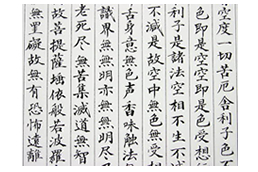 空度一切苦厄舍利子色
色即是空空即是色受想
利子是諸法空相不生不
不減是故空中無色無受
舌身意無色声香味触法
識界無無明亦無無明尽
老死尽無苦集滅道無智
故菩提薩埵依般若波羅
無罣礙故無有恐怖遠離